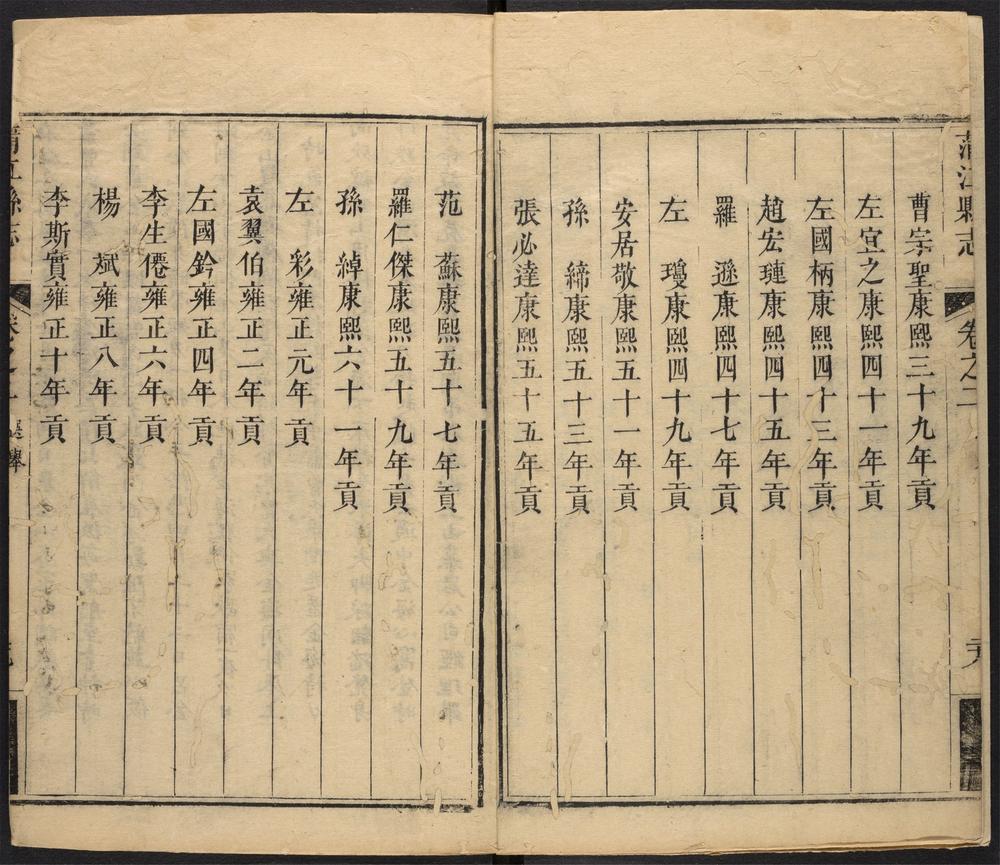 蒲江縣志
卷之二
曹宗聖康熙三十九年貢
左宜之康熙四十一年貢
左國柄康熙四十三年貢
趙宏璉康熙四十五年貢
羅　遜康熙四十七年貢
左　瓊康熙四十九年貢
安居敬康熙五十一年貢
孫　締康熙五十三年貢
張必達康熙五十五年貢
范　蘇康熙五十七年貢
羅仁傑康熙五十九年貢
孫　綽康熙六十一年貢
左　彩雍正元年貢
袁翼伯雍正二年貢
左國鈐雍正四年貢
李生僊雍正六年貢
楊　斌雍正八年貢
李斯實雍正十年貢
蒲江縣志
卷之二
選舉